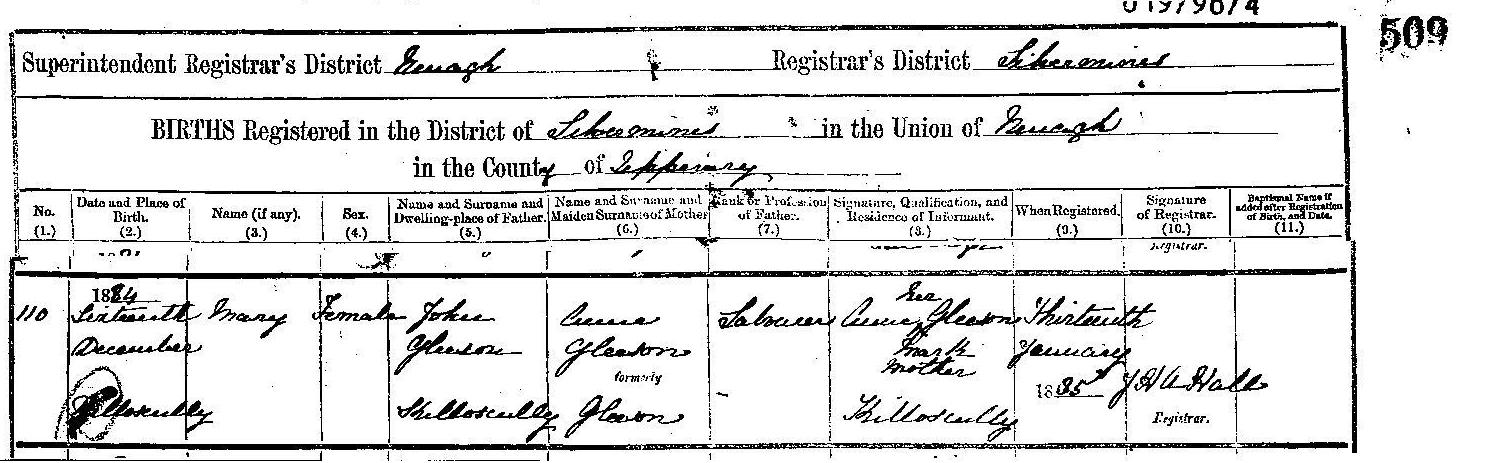 01979674
509
Superintendent Registrar's District Nenagh Registrar's District Silvermines
BIRTHS Registered in the District of Silvermines in the Union of Nenagh
in the County of Tipperary
No. (1.) Date and Place of Birth. (2.) Name (if any). (3.) Sex. (4.) Name and Surname and Dwelling-place of Father. (5.) Name and Surname and Maiden Surname of Mother (6.) Rank or Profession of Father. (7.) Signature, Qualification, and Residence of Informant. (8.) When Registered. (9.) Signature of Registrar. (10.) Baptismal Name if added after Registration of Birth, and Date. (11.)
Registrar.
1884 Her
110 Sixteenth Mary Female John Anne Labourer Anne Gleeson Thirteenth
December Gleeson Gleeson Mark January
formerly Mother 1885 J H A Hall
Killoscully Killoscully Gleeson Killoscully Registrar.